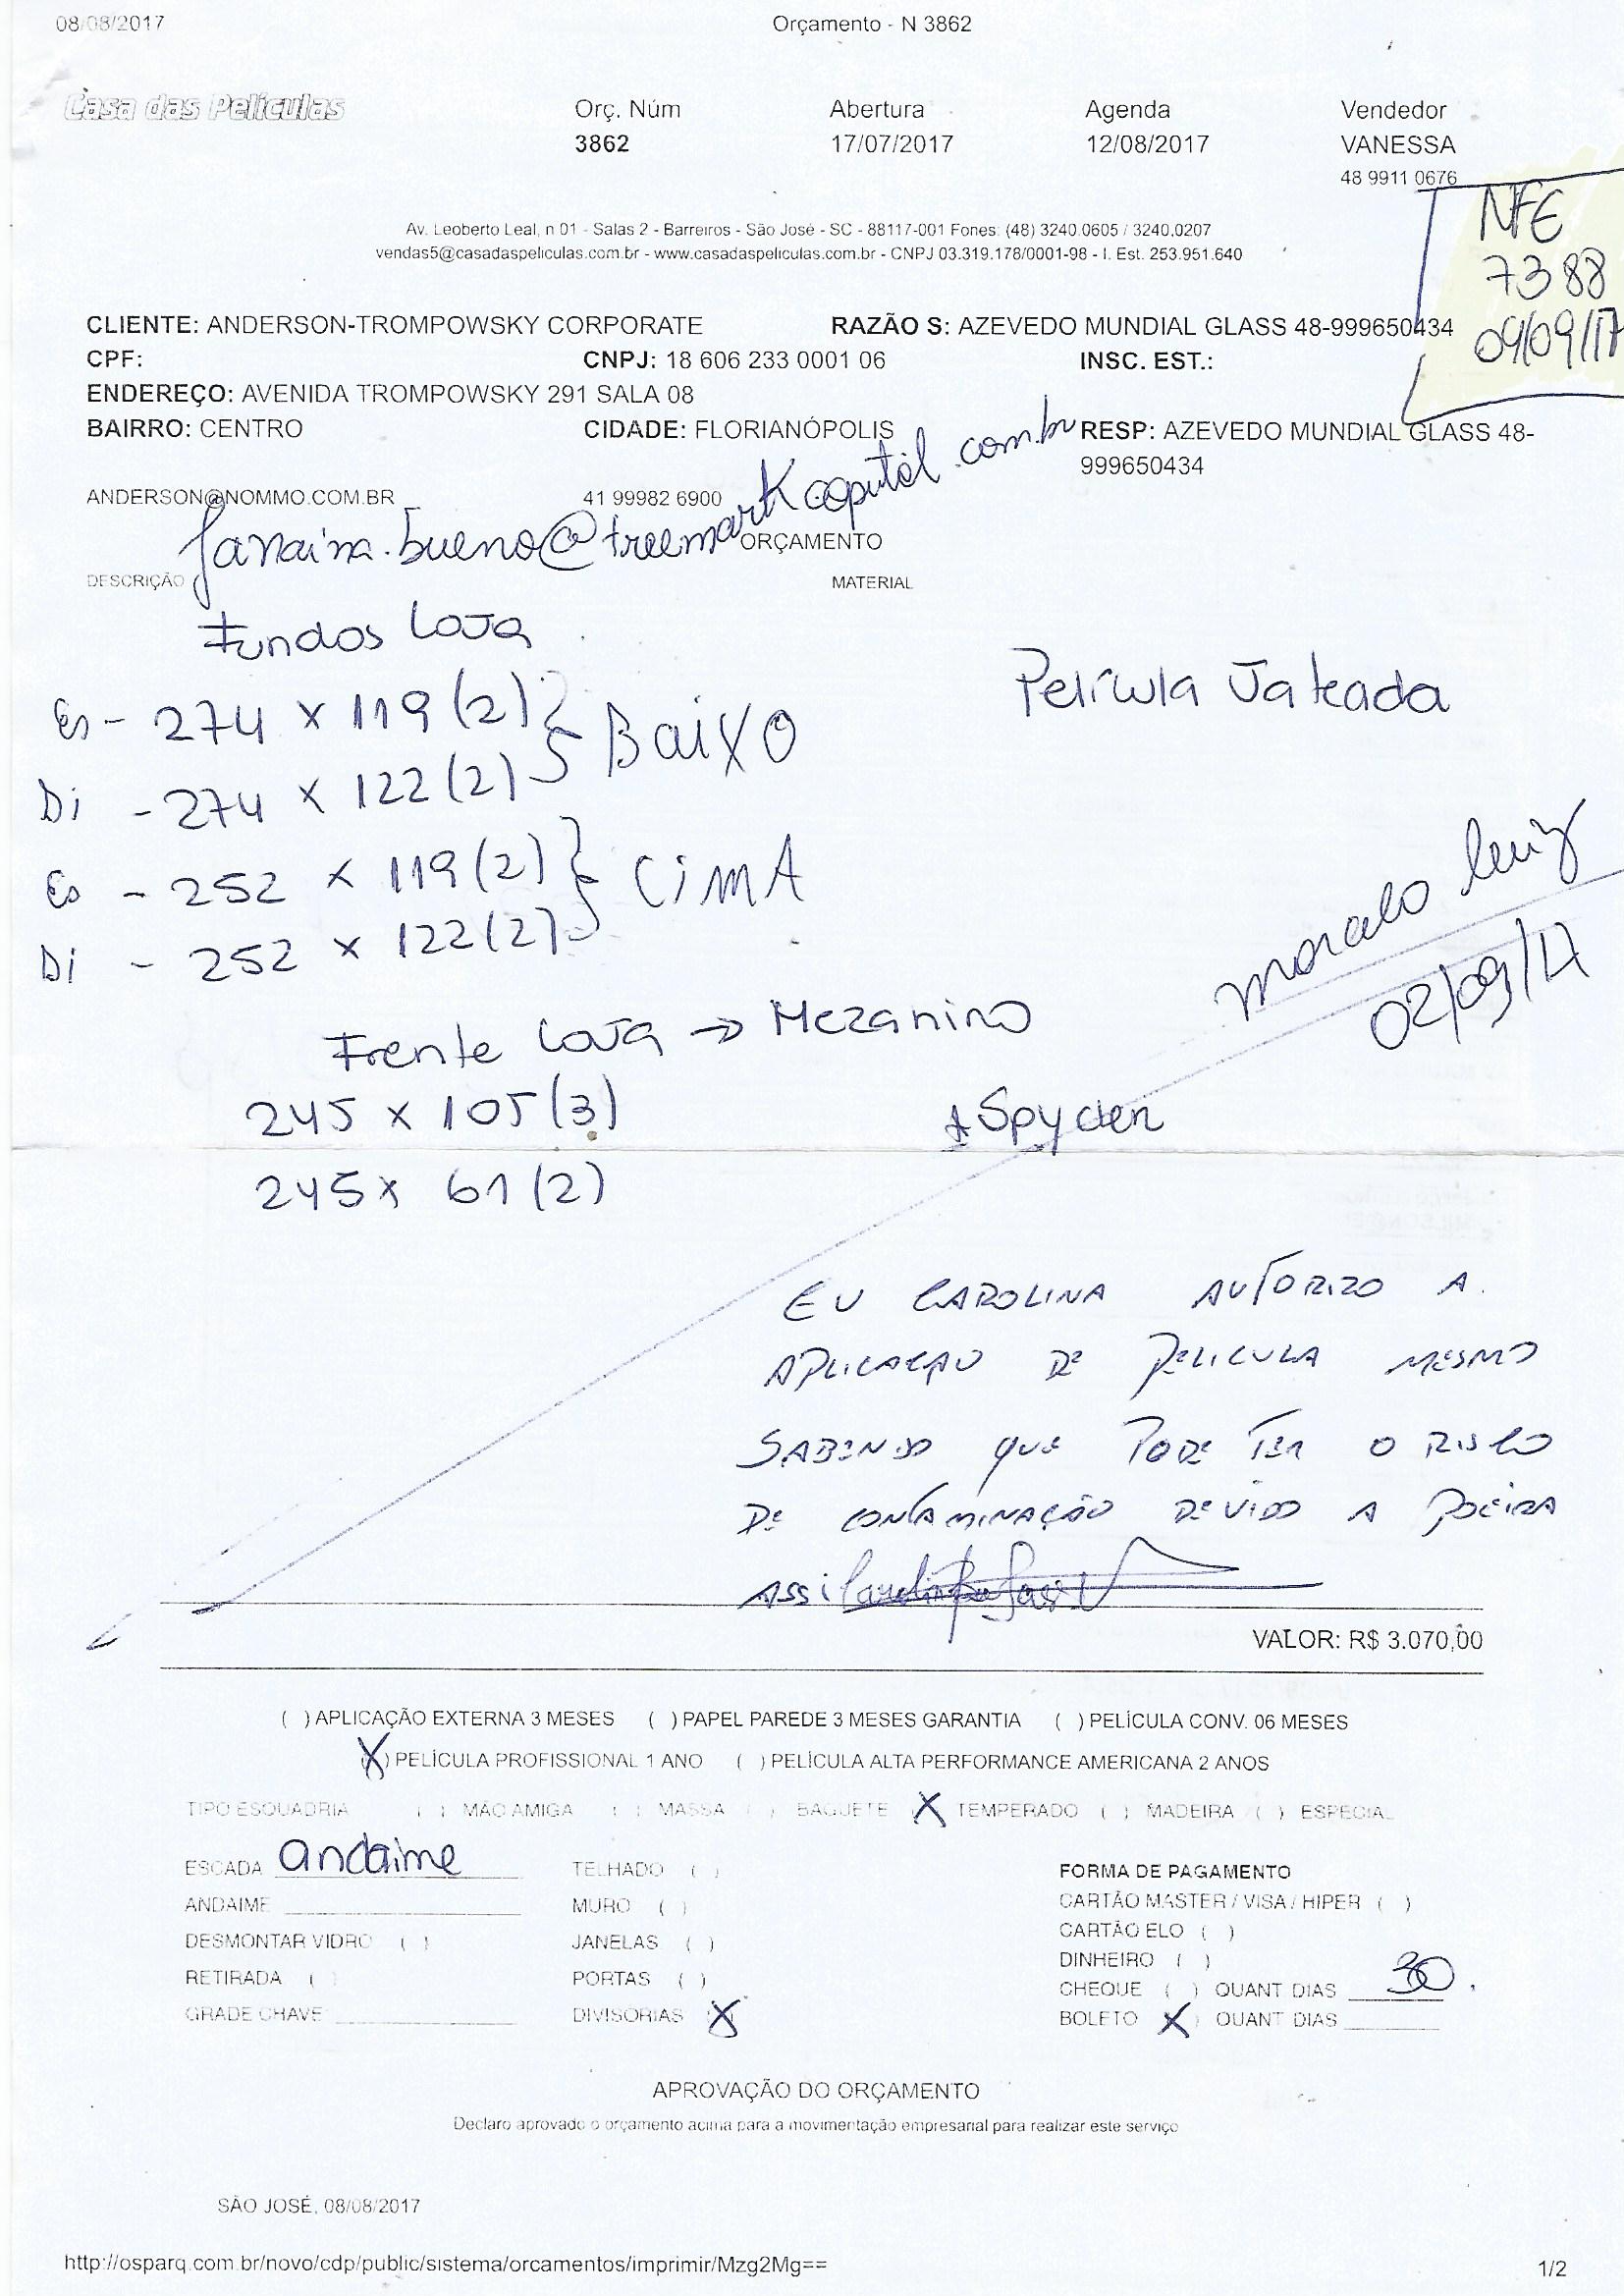 08/08/2017 Orçamento - N 3862
Casa das Películas Orç. Núm Abertura Agenda Vendedor
3862 17/07/2017 12/08/2017 VANESSA
48 9911 0676
NFE
7388
09/09/17
Av. Leoberto Leal, n 01 - Salas 2 - Barreiros - São José - SC - 88117-001 Fones: (48) 3240.0605 / 3240.0207
vendas5@casadaspeliculas.com.br - www.casadaspeliculas.com.br - CNPJ 03.319.178/0001-98 - I. Est. 253.951.640
CLIENTE: ANDERSON-TROMPOWSKY CORPORATE RAZÃO S: AZEVEDO MUNDIAL GLASS 48-999650434
CPF: CNPJ: 18 606 233 0001 06 INSC. EST.:
ENDEREÇO: AVENIDA TROMPOWSKY 291 SALA 08
BAIRRO: CENTRO CIDADE: FLORIANÓPOLIS RESP: AZEVEDO MUNDIAL GLASS 48-
999650434
ANDERSON@NOMMO.COM.BR 41 99982 6900
Janaina.bueno@treemarkcapital.com.br
ORÇAMENTO
DESCRIÇÃO MATERIAL
Fundos Loja
Película Jateada
Es - 274 x 119 (2) } Baixo
Di - 274 x 122 (2)
Es - 252 x 119 (2) } CimA
Di - 252 x 122 (2)
02/09/17
Frente Loja → Mezanino
245 x 105 (3) Spyder
245 x 61 (2)
EU CAROLINA AUTORIZO A
APLICAÇÃO DE PELICULA MESMO
SABENDO QUE PODE TER O RISCO
DE CONTAMINAÇÃO DEVIDO A POEIRA
ASSi
VALOR: R$ 3.070,00
( ) APLICAÇÃO EXTERNA 3 MESES ( ) PAPEL PAREDE 3 MESES GARANTIA ( ) PELÍCULA CONV. 06 MESES
(X) PELÍCULA PROFISSIONAL 1 ANO ( ) PELÍCULA ALTA PERFORMANCE AMERICANA 2 ANOS
TIPO ESQUADRIA ( ) MÃO AMIGA ( ) MASSA ( ) BAGUETE X TEMPERADO ( ) MADEIRA ( ) ESPECIAL
ESCADA andaime TELHADO ( ) FORMA DE PAGAMENTO
ANDAIME MURO ( ) CARTÃO MASTER / VISA / HIPER ( )
DESMONTAR VIDRO ( ) JANELAS ( ) CARTÃO ELO ( )
RETIRADA ( ) PORTAS ( ) DINHEIRO ( )
GRADE CHAVE DIVISORIAS (X) CHEQUE ( ) QUANT DIAS 30
BOLETO (X) QUANT DIAS
APROVAÇÃO DO ORÇAMENTO
Declaro aprovado o orçamento acima para a movimentação empresarial para realizar este serviço
SÃO JOSÉ, 08/08/2017
http://osparq.com.br/novo/cdp/public/sistema/orcamentos/imprimir/Mzg2Mg== 1/2